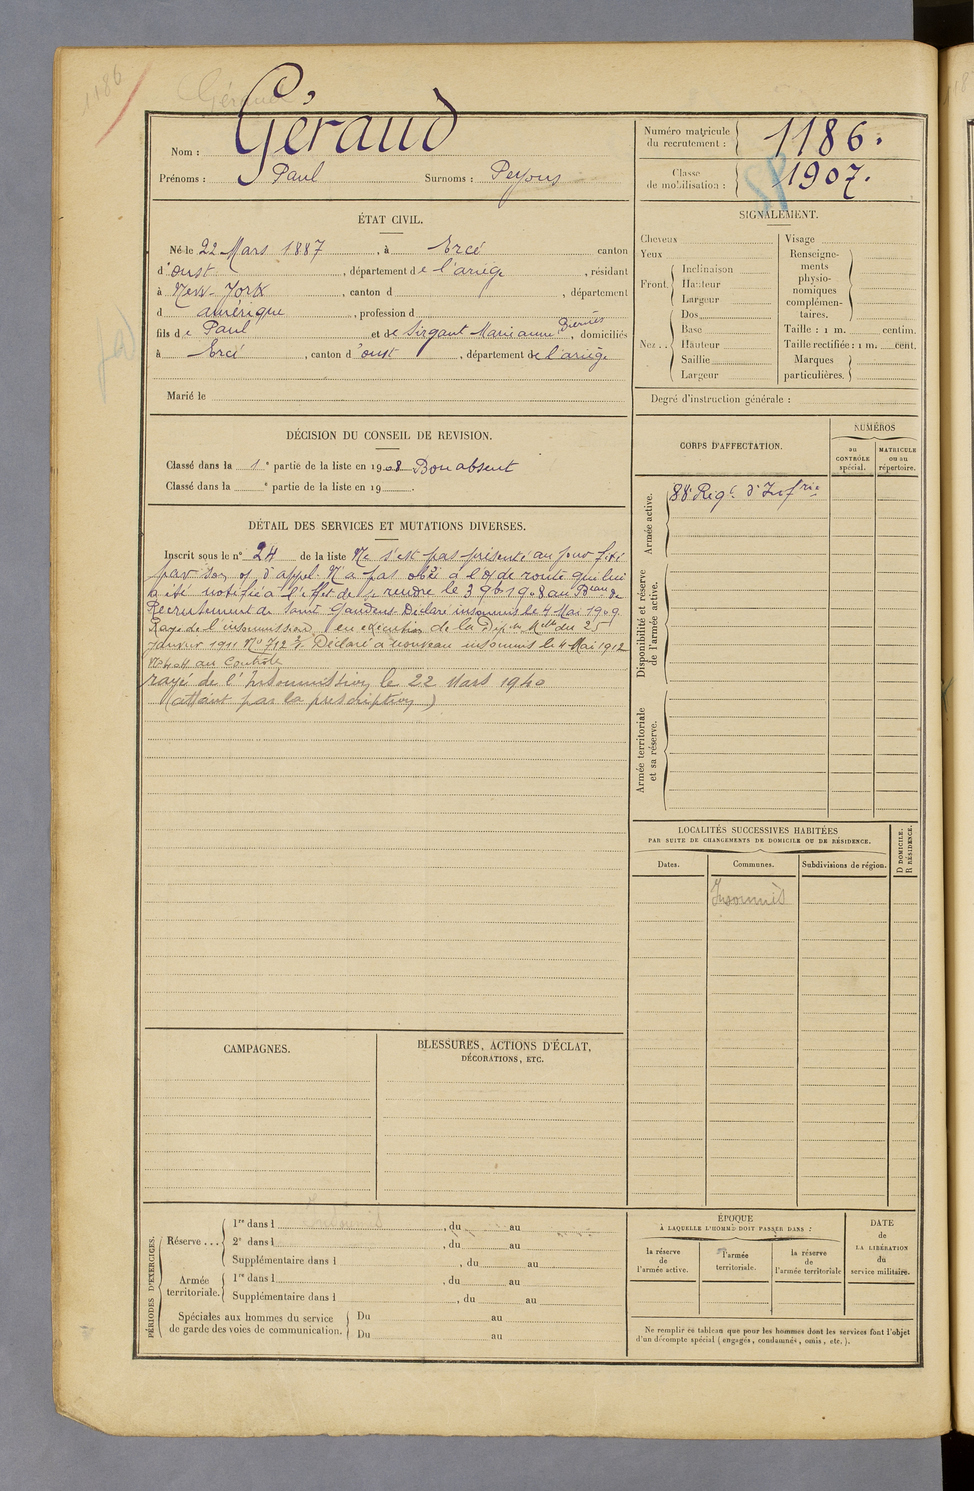 1186
Géraud
Nom : Géraud
Prénoms : Paul Surnoms : Peyous
Numéro matricule du recrutement : 1186.
Classe de mobilisation : 1907.
ÉTAT CIVIL.
Né le 22 Mars 1887, à Ercé canton
d'oust, département de l'ariège, résidant
à New-York, canton d , département
d amérique, profession d
fils de Paul et de Sirgant Marianne , domiciliés
à Ercé, canton d'oust, département de l'ariège
Marié le
SIGNALEMENT.
Cheveux
Yeux
Front. Inclinaison
Hauteur
Largeur
Nez .. Dos
Base
Hauteur
Saillie
Largeur
Visage
Renseignements physionomiques complémentaires.
Taille : 1 m. centim.
Taille rectifiée : 1 m. cent.
Marques particulières.
Degré d'instruction générale :
DÉCISION DU CONSEIL DE REVISION.
Classé dans la 1e partie de la liste en 1908 Bon absent
Classé dans la e partie de la liste en 19 .
CORPS D'AFFECTATION.
NUMÉROS
au CONTRÔLE spécial.
MATRICULE ou au répertoire.
Armée active.
88e Régt d'Infrie
Disponibilité et réserve de l'armée active.
Armée territoriale et sa réserve.
DÉTAIL DES SERVICES ET MUTATIONS DIVERSES.
Inscrit sous le n° 24 de la liste Ne s'est pas présenté au jour fixé
par son o/ d'appel. N'a pas obéi à l'o/ de route qui lui
a été notifié à l'effet de se rendre le 3 9b 1908 au Bureau de
Recrutement de Saint Gaudens. Déclaré insoumis le 4 Mai 1909.
Rayé de l'insoumission en exécution de la Dépêche Mlle du 25
Janvier 1911 No 712 . Déclaré à nouveau insoumis le 4 Mai 1912
au Contrôle
rayé de l'Insoumission le 22 Mars 1940
(atteint par la prescription)
LOCALITÉS SUCCESSIVES HABITÉES
PAR SUITE DE CHANGEMENTS DE DOMICILE OU DE RÉSIDENCE.
Dates. Communes. Subdivisions de région.
D DOMICILE. R RÉSIDENCE.
Insoumis
CAMPAGNES.
BLESSURES, ACTIONS D'ÉCLAT,
DÉCORATIONS, ETC.
PÉRIODES D'EXERCICES.
Réserve ... 1re dans l Insoumis , du au
2e dans l , du au
Supplémentaire dans l , du au
Armée territoriale. 1re dans l , du au
Supplémentaire dans l , du au
Spéciales aux hommes du service de garde des voies de communication. Du au
Du au
ÉPOQUE
À LAQUELLE L'HOMME DOIT PASSER DANS :
la réserve de l'armée active.
l'armée territoriale.
la réserve de l'armée territoriale
DATE de LA LIBÉRATION du service militaire.
Ne remplir ce tableau que pour les hommes dont les services font l'objet
d'un décompte spécial (engagés, condamnés, omis, etc.).